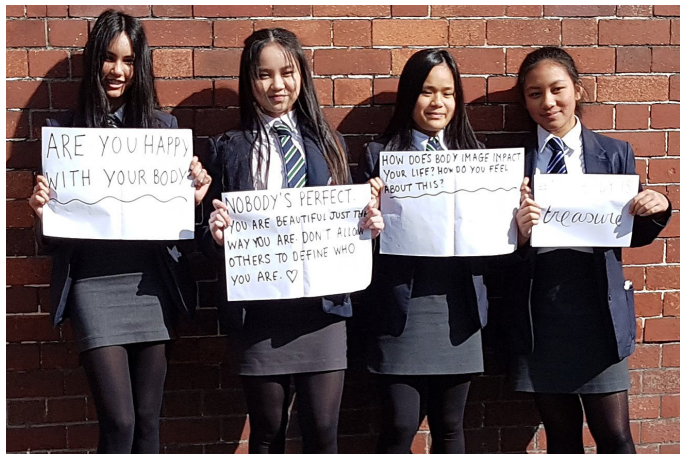 ARE YOU HAPPY
WITH YOUR BODY?
NOBODY'S PERFECT.
YOU ARE BEAUTIFUL JUST THE
WAY YOU ARE. DON'T ALLOW
OTHERS TO DEFINE WHO
YOU ARE. ♡
HOW DOES BODY IMAGE IMPACT
YOUR LIFE? HOW DO YOU FEEL
ABOUT THIS?
treasure